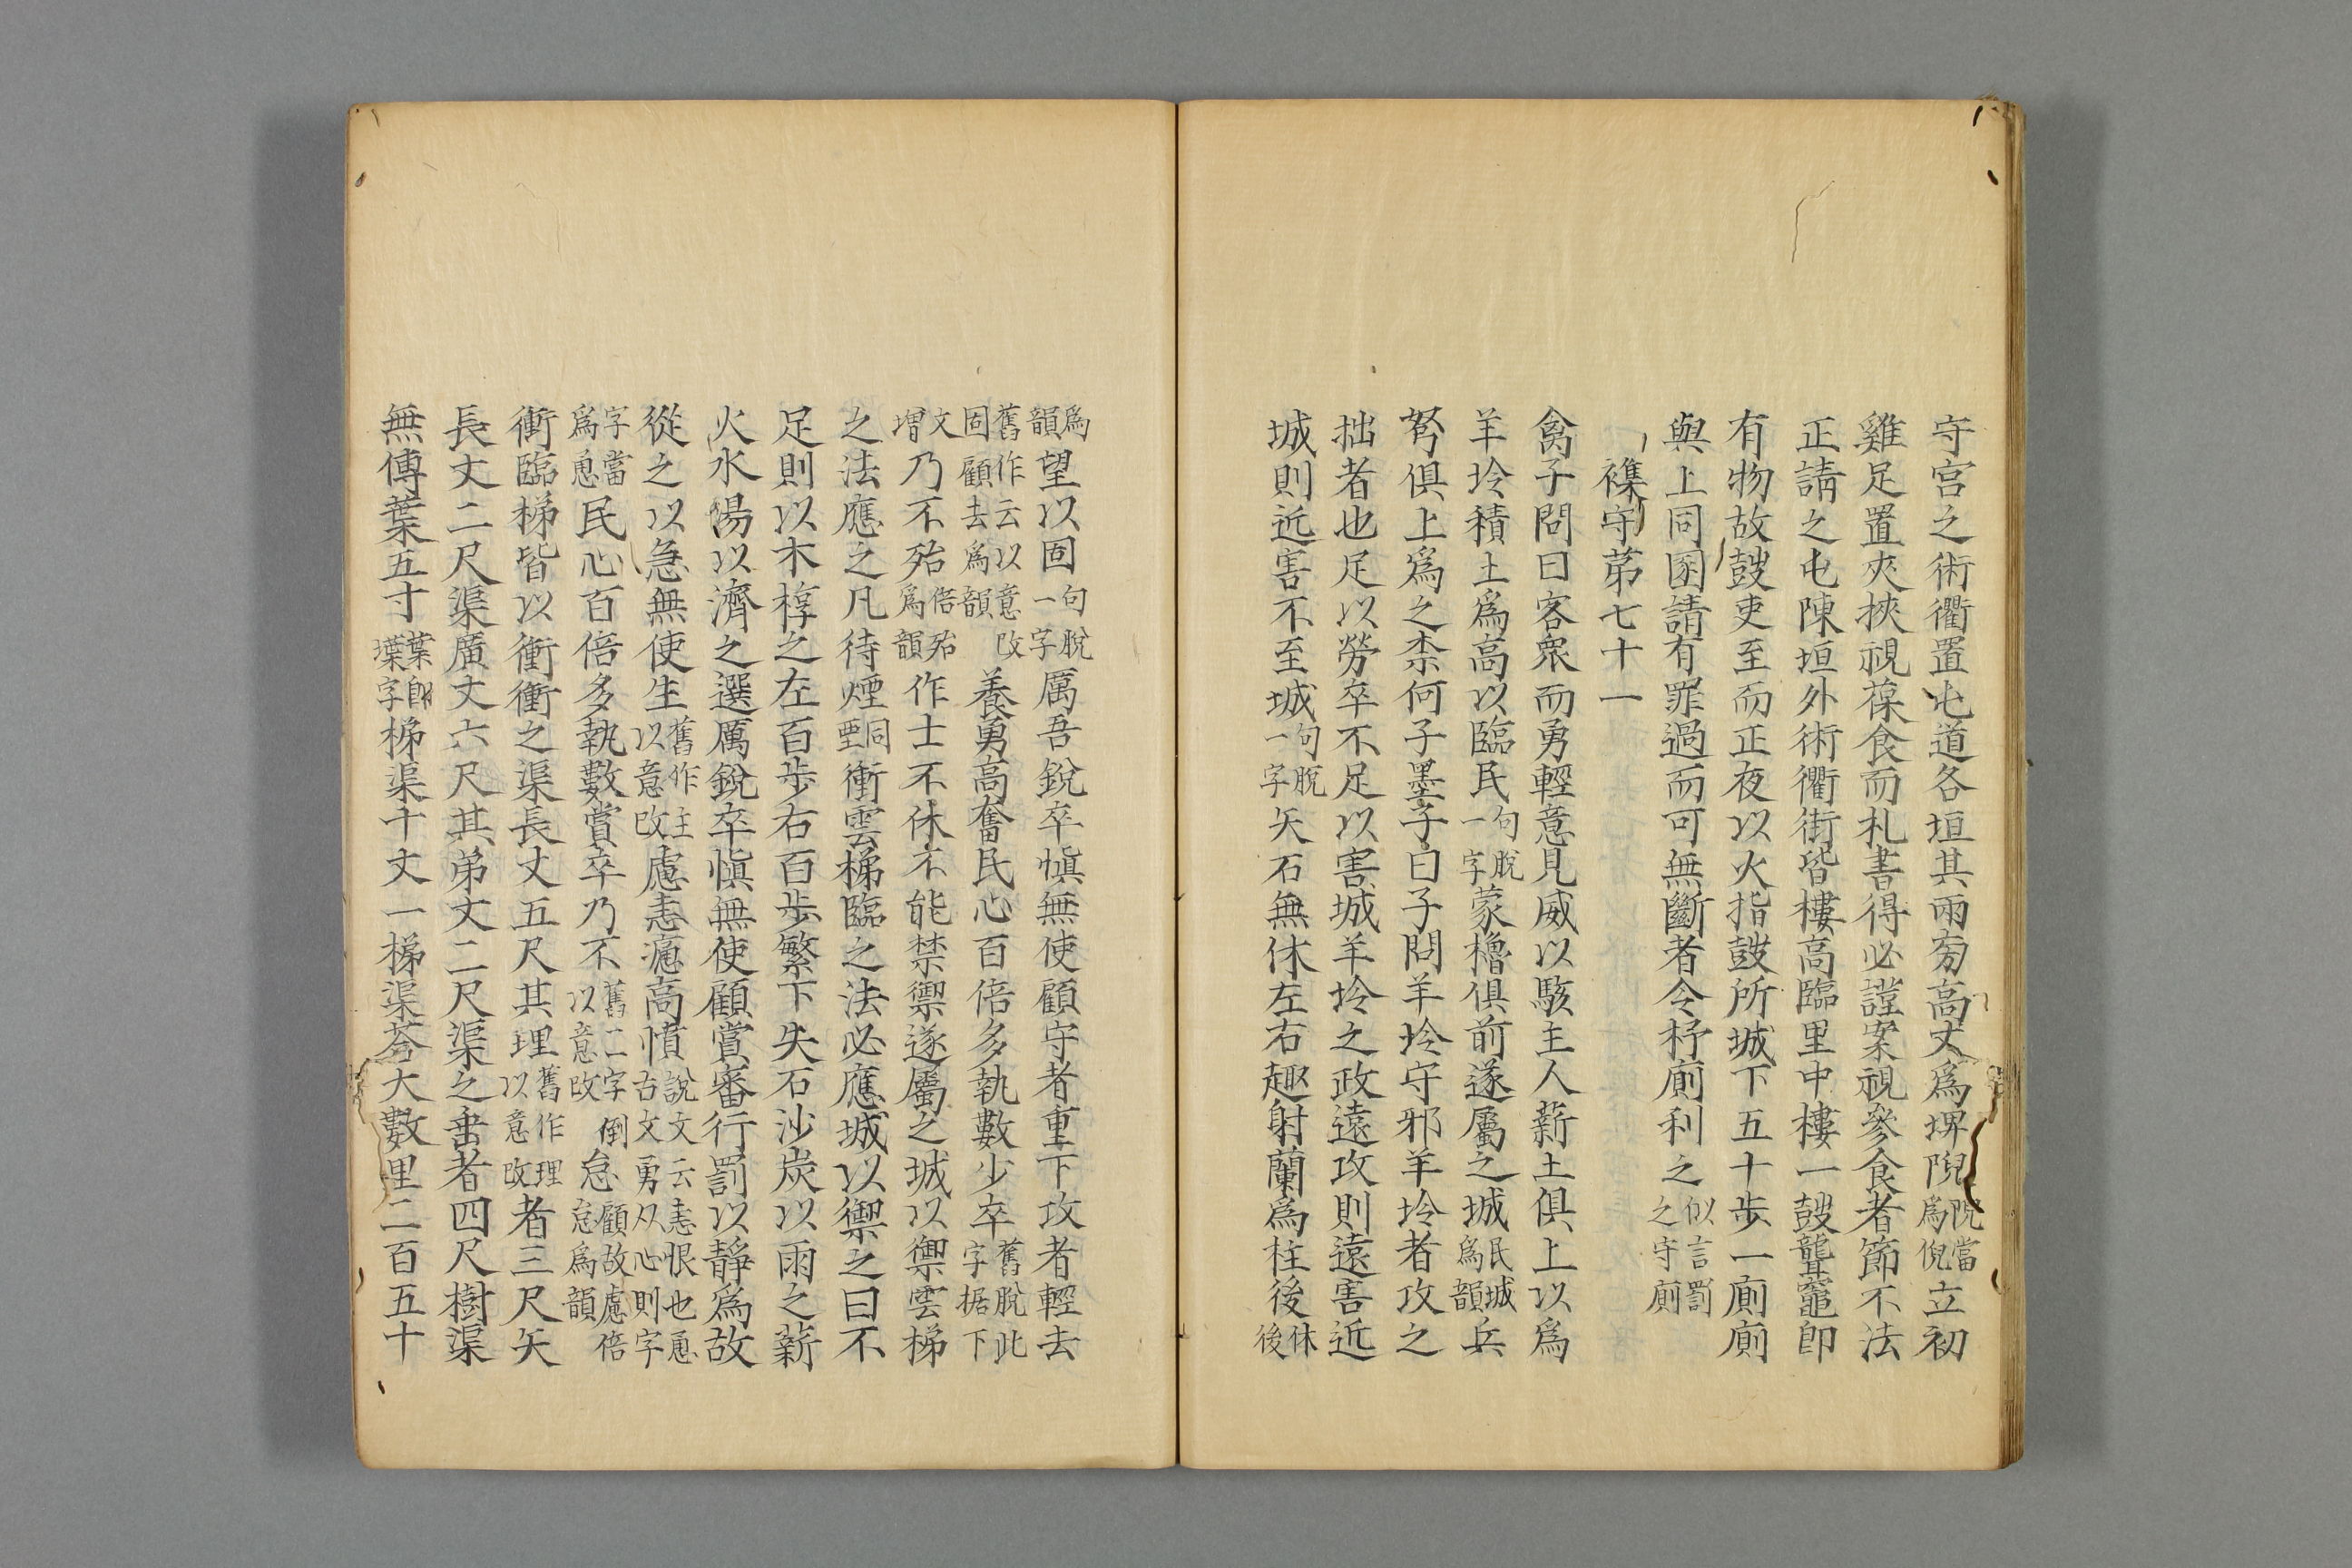 守宫之術衢置屯道各垣其兩旁高丈爲埤𨺙𨺙當爲倪立初
雞足置夾挾視葆食而札書得必謹案視參食者節不法
正請之屯陳垣外術衢街皆樓高臨里中樓一鼓聾竈卽
有物故鼓吏至而正夜以火指鼓所城下五十步一廁廁
與上同圂請有罪過而可無斷者令杼廁利之似言罰之守廁
襍守第七十一
禽子問曰客衆而勇輕意見威以駭主人薪土俱上以爲
羊坽積土爲高以臨民句脫一字蒙櫓俱前遂屬之城民城爲韻兵
弩俱上爲之柰何子墨子曰子問羊坽守邪羊坽者攻之
拙者也足以勞卒不足以害城羊坽之政遠攻則遠害近
城則近害不至城句脫一字矢石無休左右趣射蘭爲柱後休後
爲韻望以固句脫一字厲吾銳卒愼無使顧守者重下攻者輕去
舊作云以意改固顧去爲韻養勇高奮民心百倍多執數少卒舊脫此字据下
文增乃不殆倍殆爲韻作士不休不能禁禦遂屬之城以禦雲梯
之法應之凡待煙同堙衝雲梯臨之法必應城以禦之曰不
足則以木椁之左百步右百步繁下失石沙炭以雨之薪
火水湯以濟之選厲銳卒愼無使顧賞審行罰以靜爲故
從之以急無使生舊作主以意改慮恚㾼高憤說文云恚恨也恿古文勇从心則字
字當爲恿民心百倍多執數賞卒乃不舊二字倒以意改怠顧故慮倍怠爲韻
衝臨梯皆以衝衝之渠長丈五尺其埋舊作理以意改者三尺矢
長丈二尺渠廣丈六尺其弟丈二尺渠之垂者四尺樹渠
無傅葉五寸葉卽堞字梯渠十丈一梯渠荅大數里二百五十